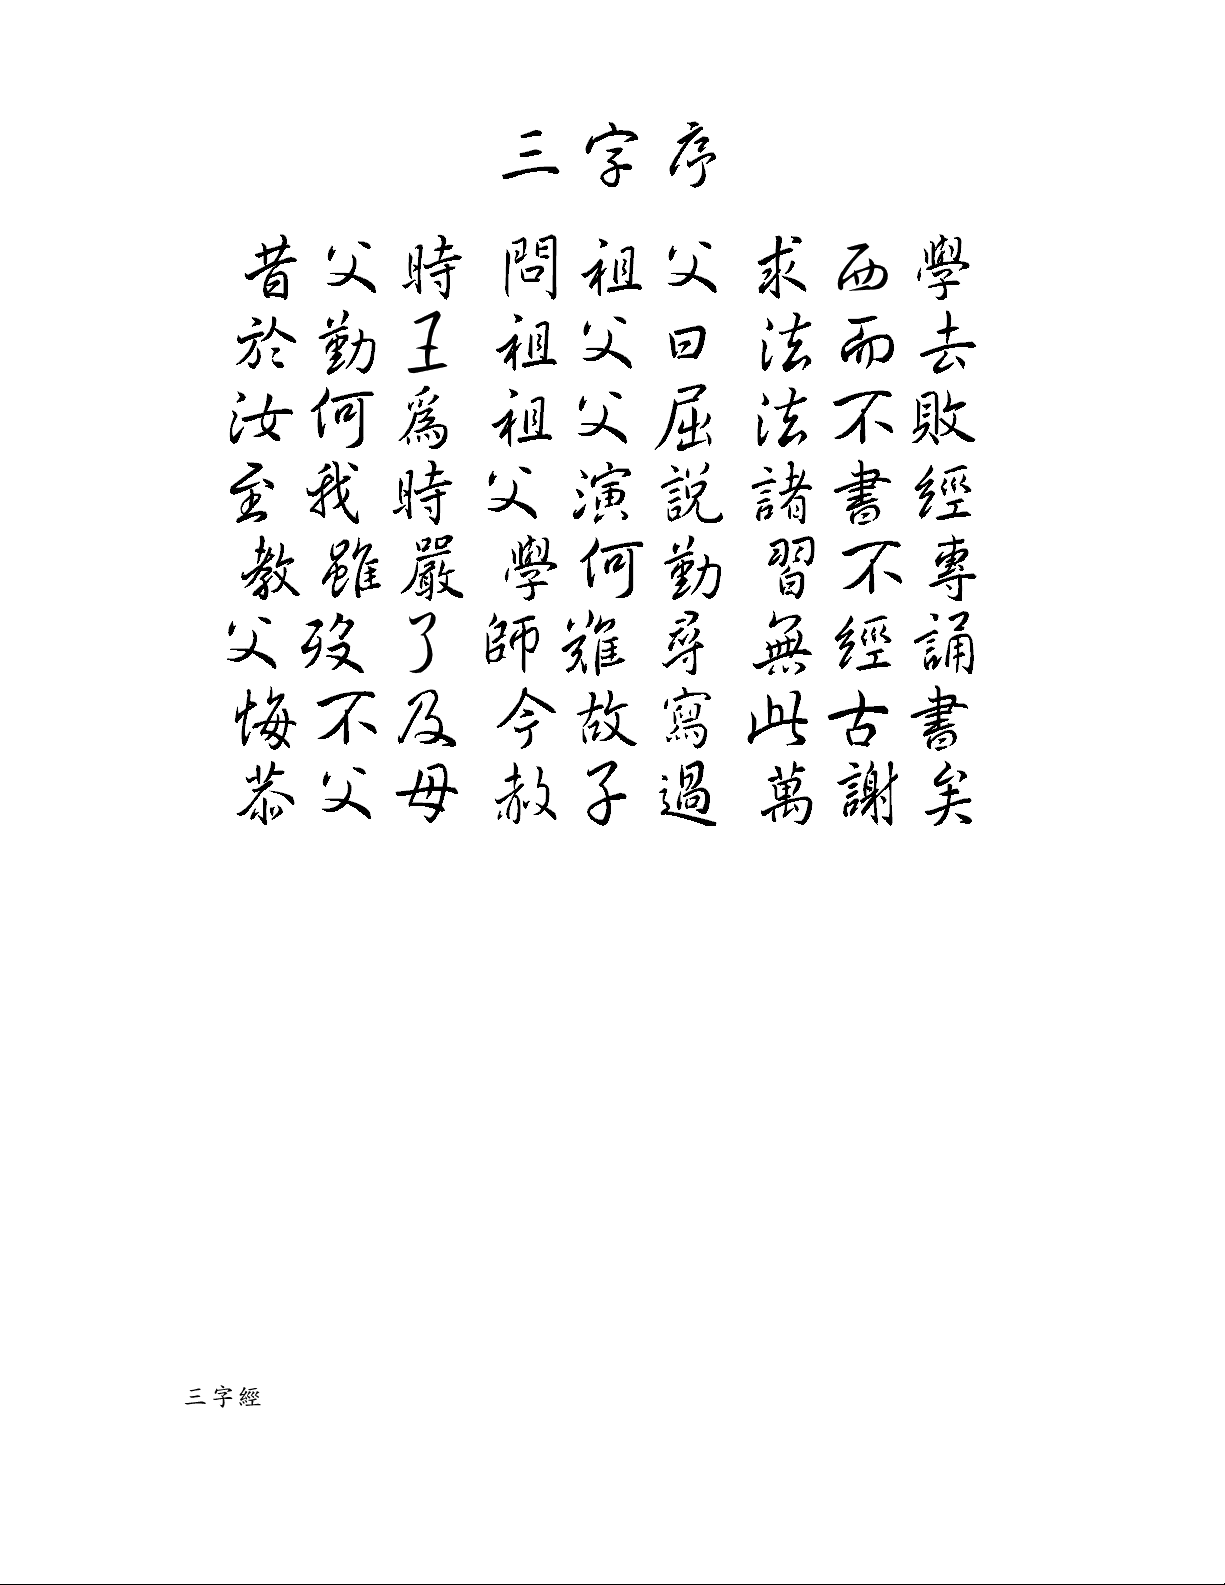 三字序
昔父時 問祖父 求西學
於勤王 祖父曰 法而去
汝何爲 祖父屈 法不敗
至我時 父演說 諸書經
教雖嚴 學何勤 習不專
父歿了 師難尋 無經誦
悔不及 今故寫 此古書
恭父母 赦子過 萬謝矣
三字經